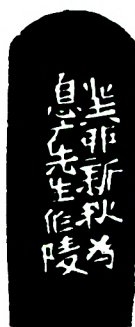 癸卯新秋为
息广先生作陵